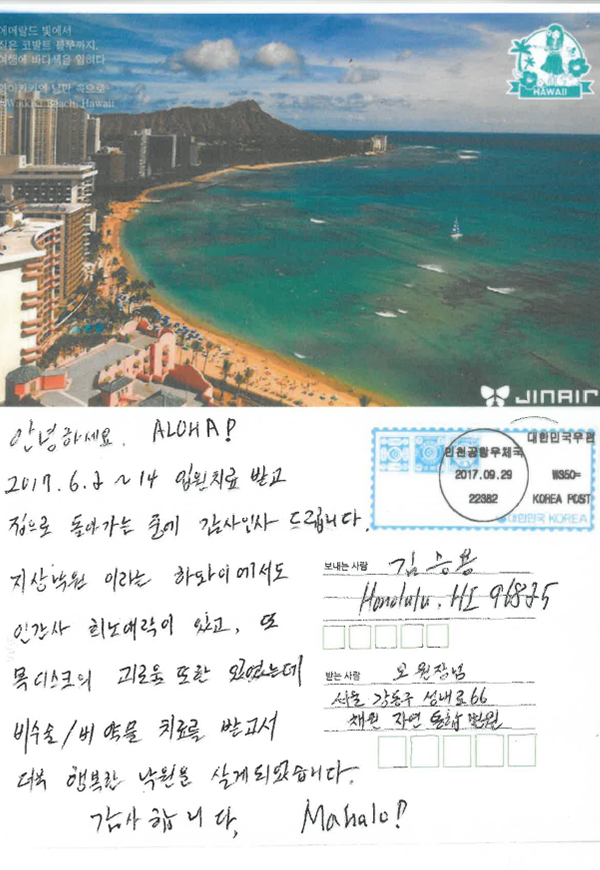 에메랄드 빛에서
짙은 코발트 블루까지,
여행에 바다색을 입히다
와이키키의 낭만 속으로
Waikiki Beach, Hawaii
HAWAII
JINAIR
안녕하세요. ALOHA!
2017.6.2 ~14 입원치료 받고
집으로 돌아가는 중에 감사인사 드립니다.
지상낙원 이라는 하와이에서도
인간사 희노애락이 있고, 또
목디스크의 괴로움 또한 있었는데
비수술/비약물 치료를 받고서
더욱 행복한 낙원을 살게되었습니다.
감사합니다. Mahalo!
인천공항우체국
2017.09.29
22382
대한민국우편
₩350=
KOREA POST
대한민국 KOREA
보내는 사람 김승용
Honolulu, HI 96825
받는 사람 모 원장님
서울 강동구 성내로66
채원 자연 통합 병원